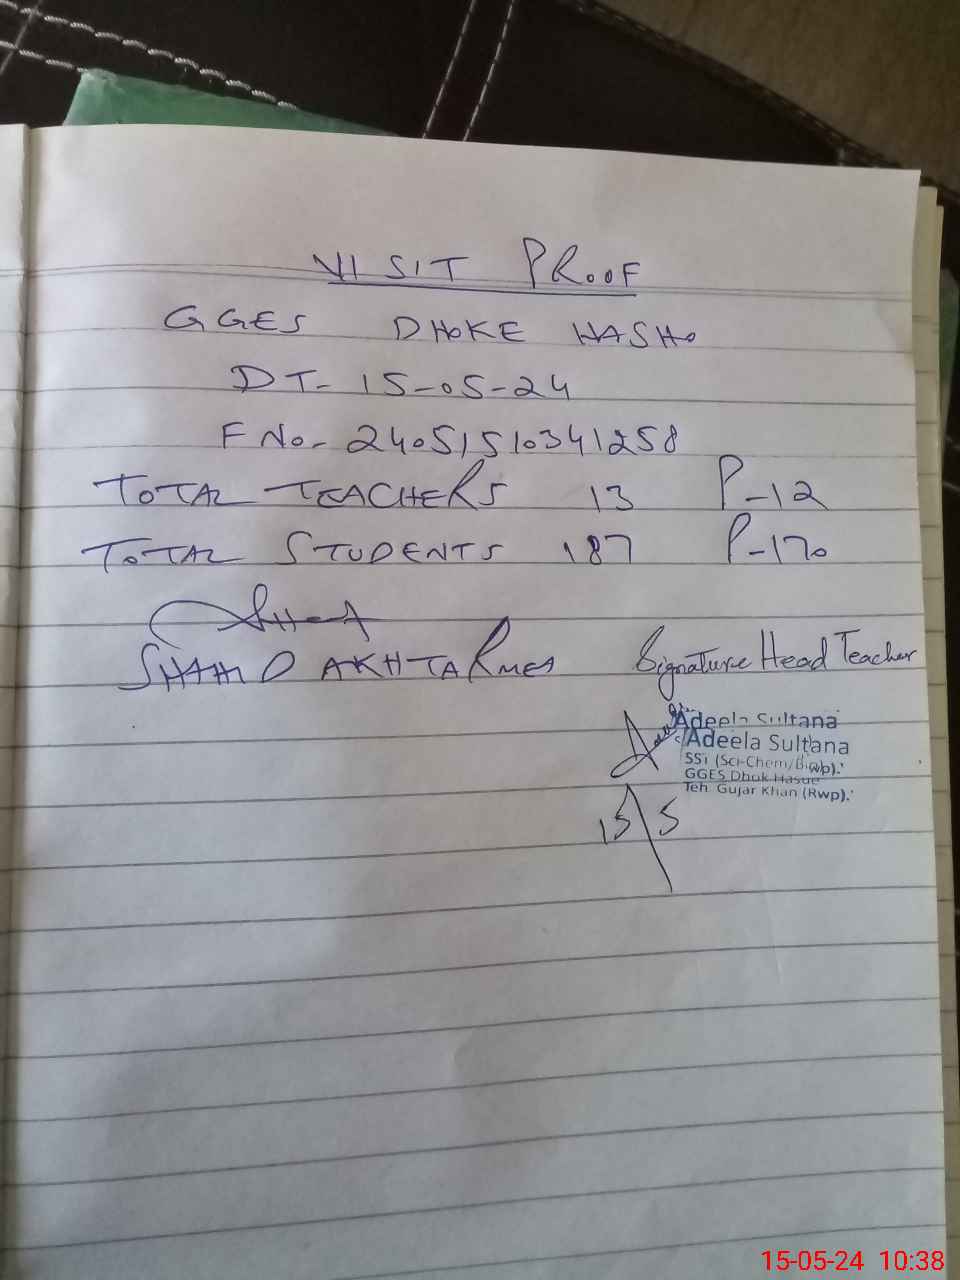 VISIT PROOF
GGES DHOKE HASHO
DT- 15-05-24
F No- 24051510341258
TOTAL TEACHERS 13 P-12
TOTAL STUDENTS 187 P-170
SHAHID AKHTAR MEA
Signature Head Teacher
Adeela Sultana
Adeela Sultana
SST (Sci-Chem/Bio)
GGES Dhok Hasue
Teh. Gujar Khan (Rwp).
15/5
15-05-24 10:38